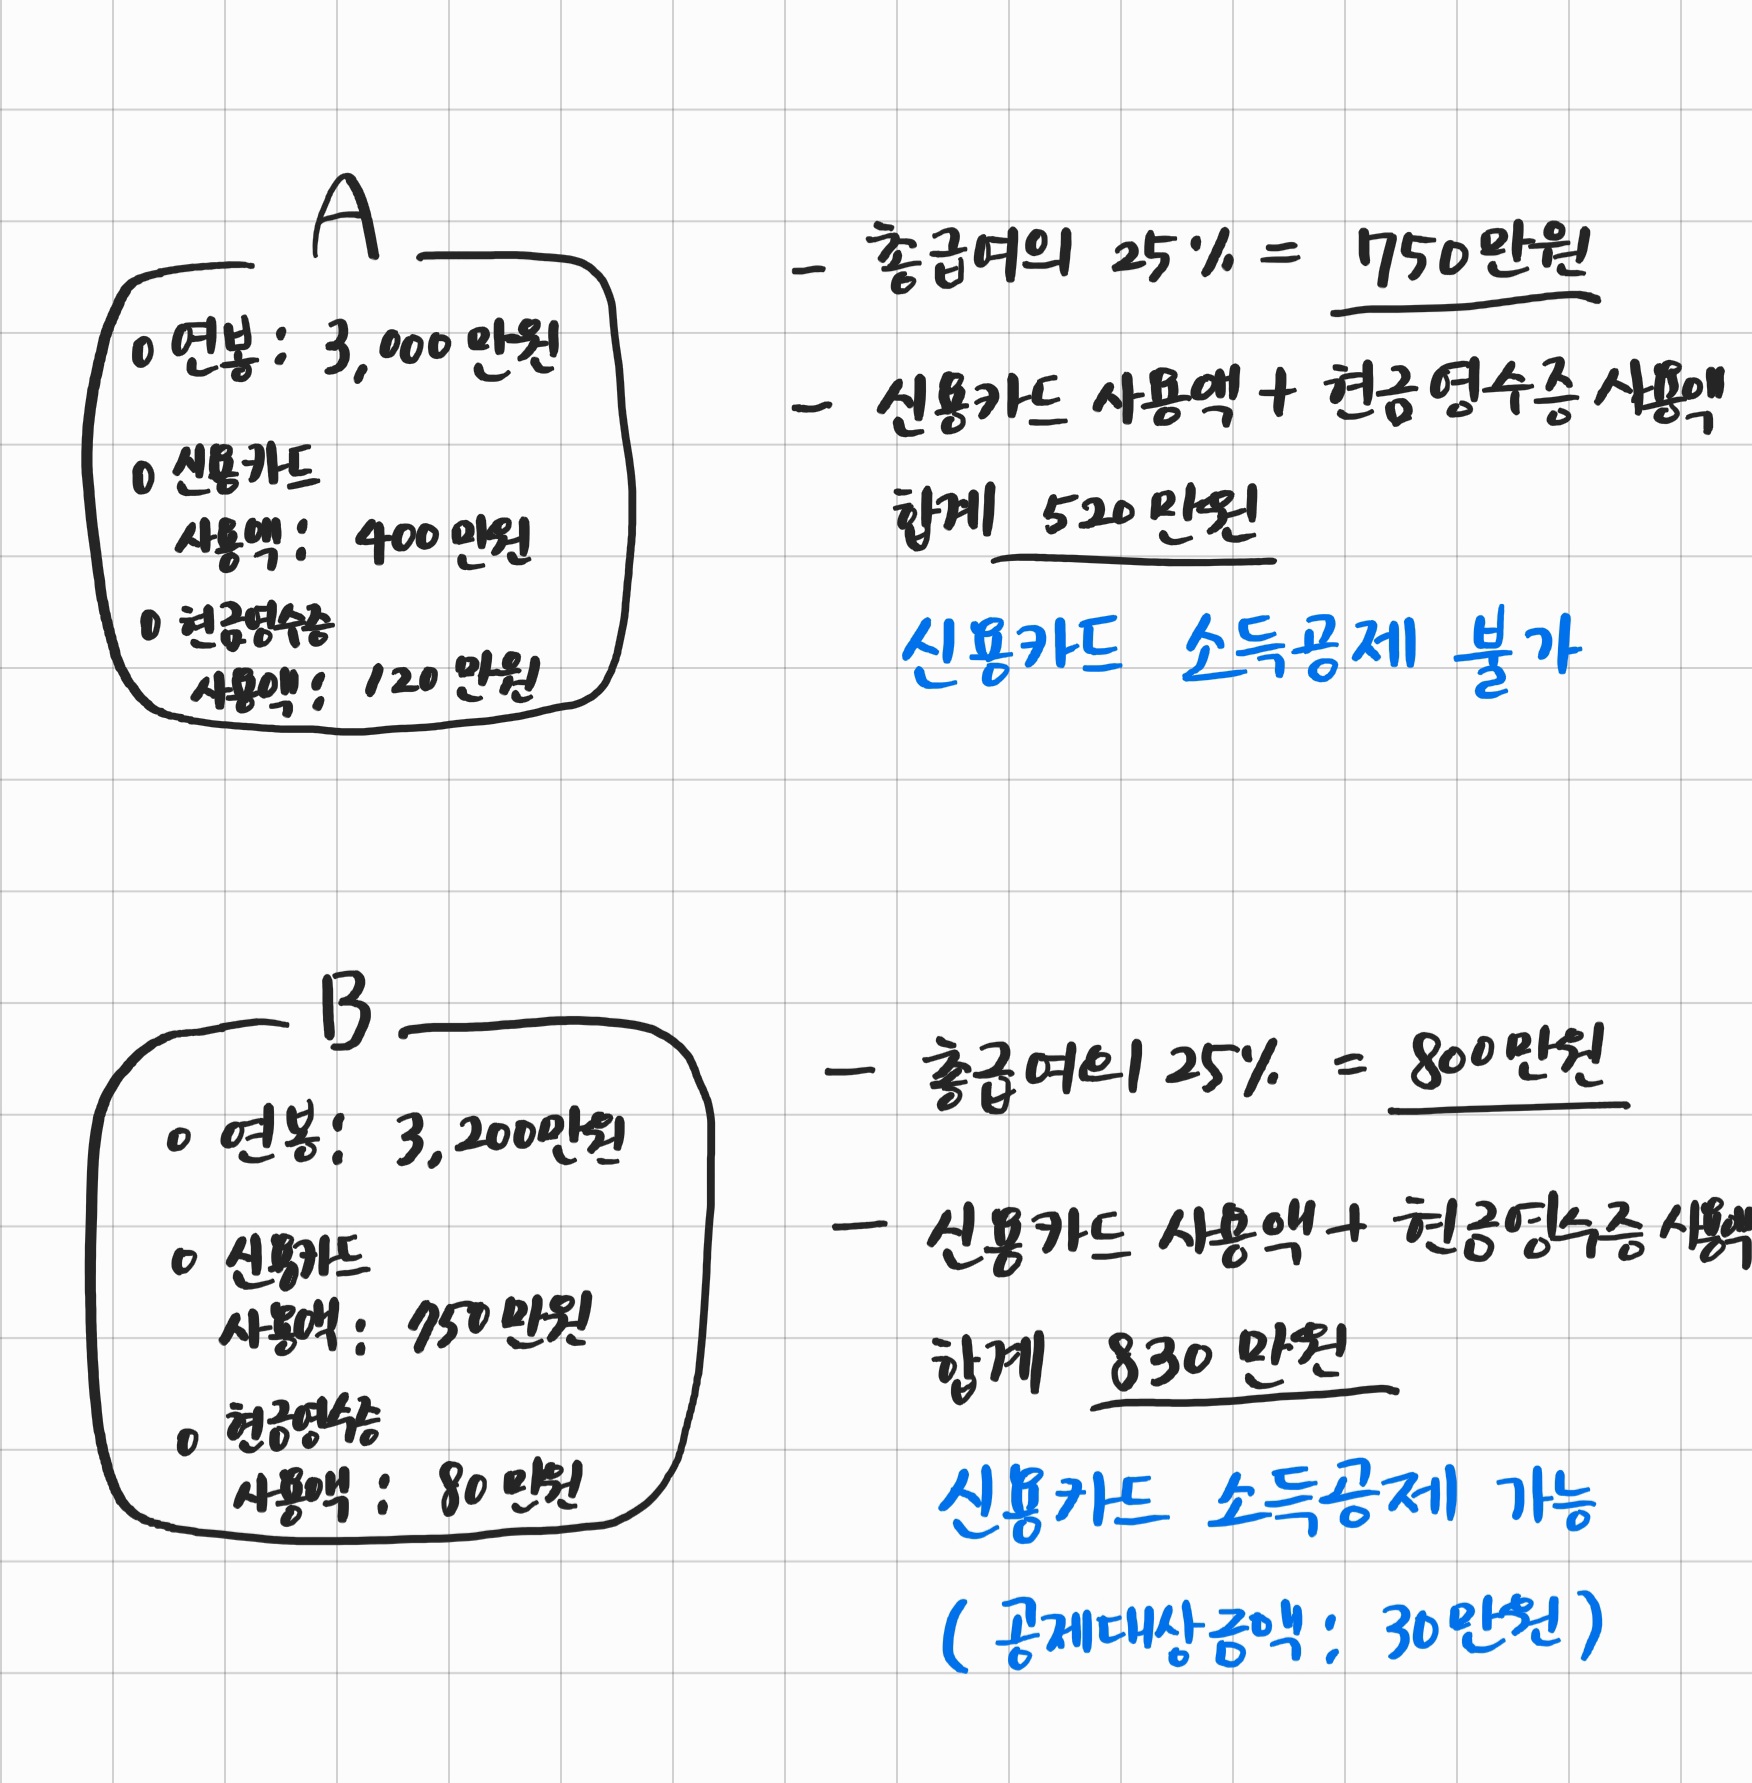 A
o 연봉: 3,000만원
o 신용카드
사용액: 400만원
o 현금영수증
사용액: 120만원
- 총급여의 25% = 750만원
- 신용카드 사용액 + 현금영수증 사용액
합계 520만원
신용카드 소득공제 불가
B
o 연봉: 3,200만원
o 신용카드
사용액: 750만원
o 현금영수증
사용액: 80만원
- 총급여의 25% = 800만원
- 신용카드 사용액 + 현금영수증 사용액
합계 830만원
신용카드 소득공제 가능
(공제대상금액: 30만원)